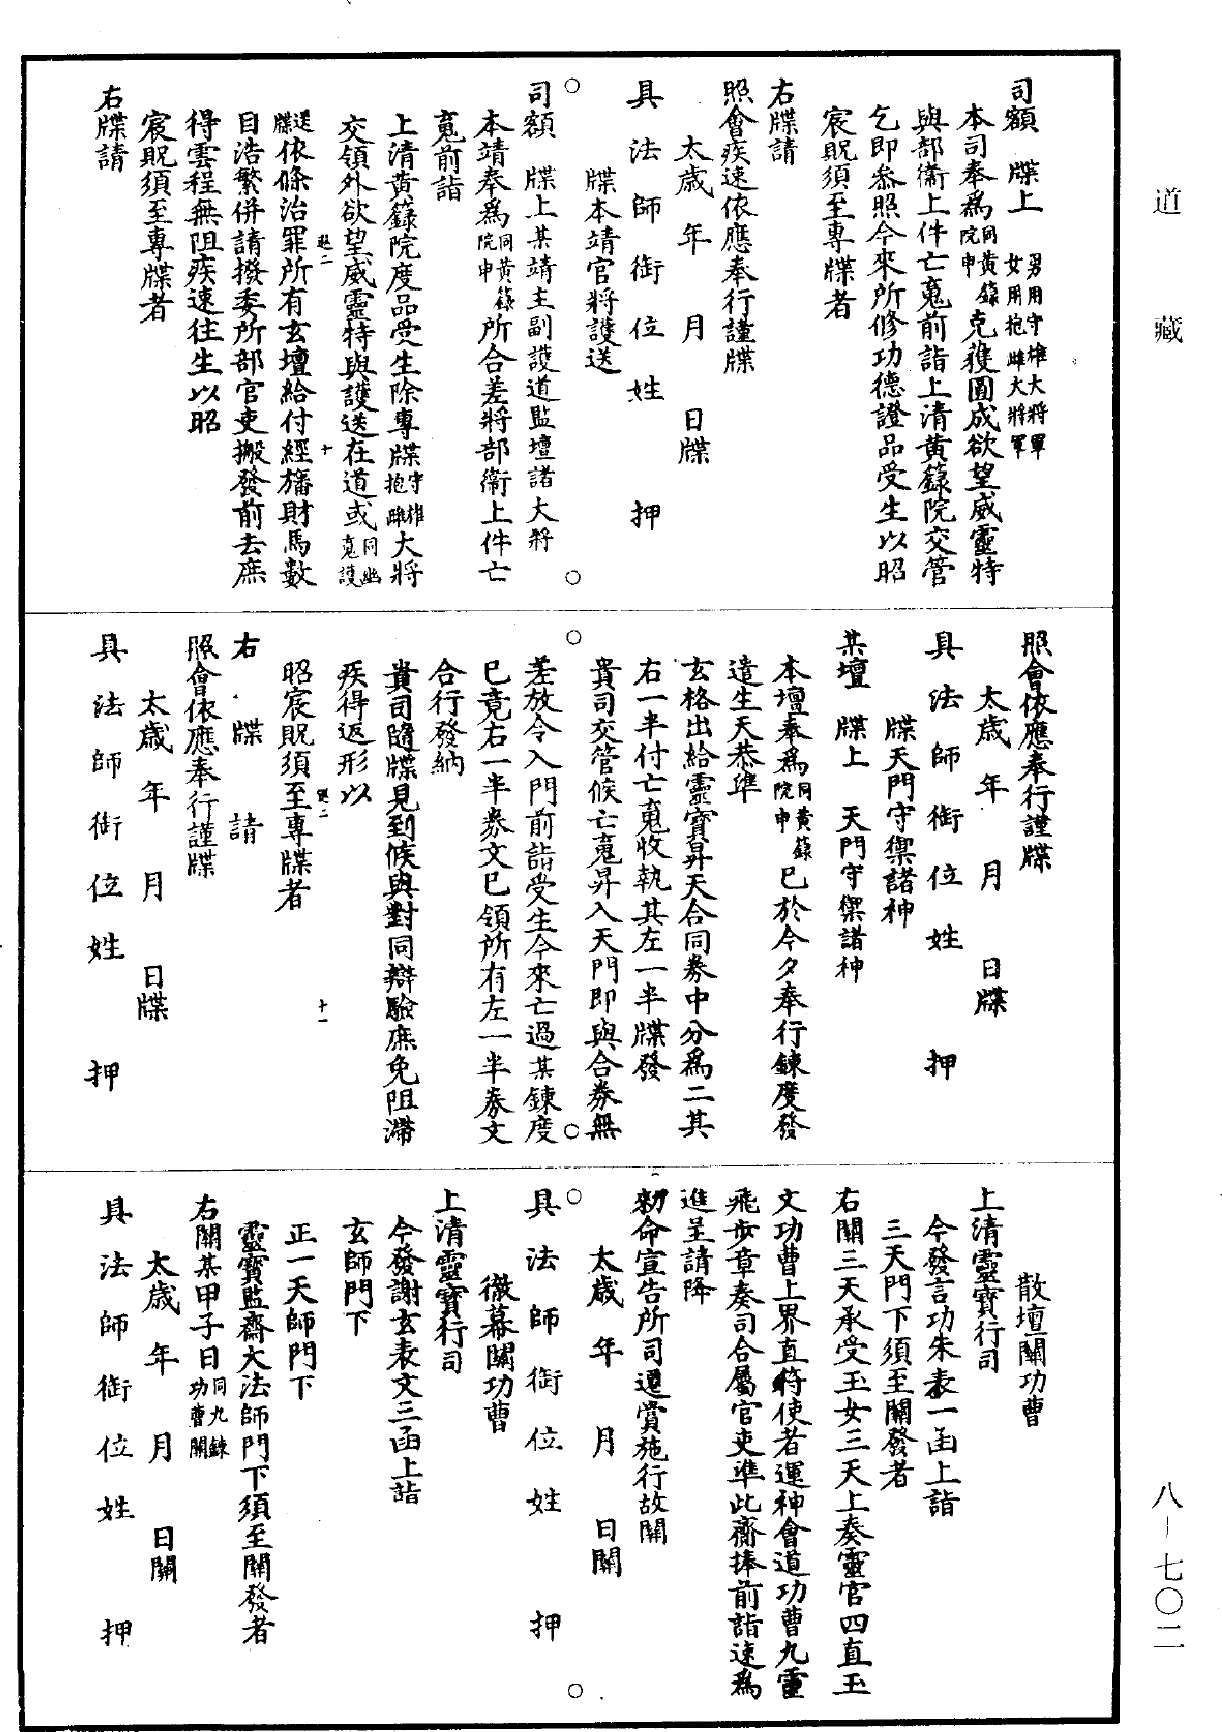 道藏
八—七〇二
司額　牒上　男用守雄大將軍女用抱雌大將軍
本司奉爲同黃籙院申克獲圓成欲望威靈特
與部衞上件亡䰟前詣上清黃籙院交管
乞即叅照今來所修功德證品受生以昭
宸貺須至專牒者
右牒請
照會疾速依應奉行謹牒
太歲　年　月　日牒
具　法　師　銜　位　姓　押
牒本靖官將護送
司額　牒上某靖主副護道監壇諸大將
本靖奉爲同黃籙院申所合差將部衞上件亡
䰟前詣
上清黃籙院度品受生除專牒守雄抱雌大將
交領外欲望威靈特與護送在道或同幽䰟護
送牒依條治罪所有玄壇給付經旛財馬數
目浩繁併請撥委所部官吏搬發前去庶
得雲程無阻疾速往生以昭
宸貺須至專牒者
右牒請
照會依應奉行謹牒
太歲　年　月　日牒
具　法　師　銜　位　姓　押
牒天門守禦諸神
某壇　牒上　天門守禦諸神
本壇奉爲同黃籙院申巳於今夕奉行鍊度發
遣生天恭準
玄格出給靈寶昇天合同券中分爲二其
右一半付亡䰟收執其左一半牒發
貴司交管候亡䰟昇入天門即與合券無
差放令入門前詣受生今來亡過某鍊度
巳竟右一半券文巳領所有左一半券文
合行發納
貴司隨牒見到候與對同辯驗庶免阻滯
疾得返形以
昭宸貺須至專牒者
右　牒　請
照會依應奉行謹牒
太歲　年　月　日牒
具　法　師　銜　位　姓　押
散壇關功曹
上清靈寶行司
今發言功朱表一函上詣
三天門下須至關發者
右關三天承受玉女三天上奏靈官四直玉
文功曹上界直符使者運神會道功曹九靈
飛步章奏司合屬官吏準此齋捧前詣速爲
進呈請降
勑命宣告所司遷賞施行故關
太歲　年　月　日關
具　法　師　銜　位　姓　押
徹幕關功曹
上清靈寶行司
今發謝玄表文三函上詣
玄師門下
正一天師門下
靈寶監齋大法師門下須至關發者
右關某甲子日同九鍊功曹關
太歲　年　月　日關
具　法　師　銜　位　姓　押